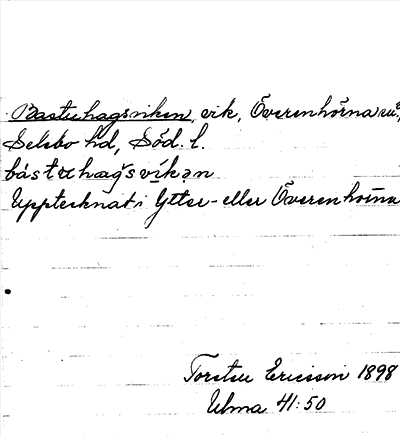 Bastuhagsviken, vik, Överenhörna sn,
Selebo hd, Söd. l.
bástuhagsvíkən
Upptecknat i Ytter- eller Överenhörna
Torsten Ericsson 1898
Ulma 41:50